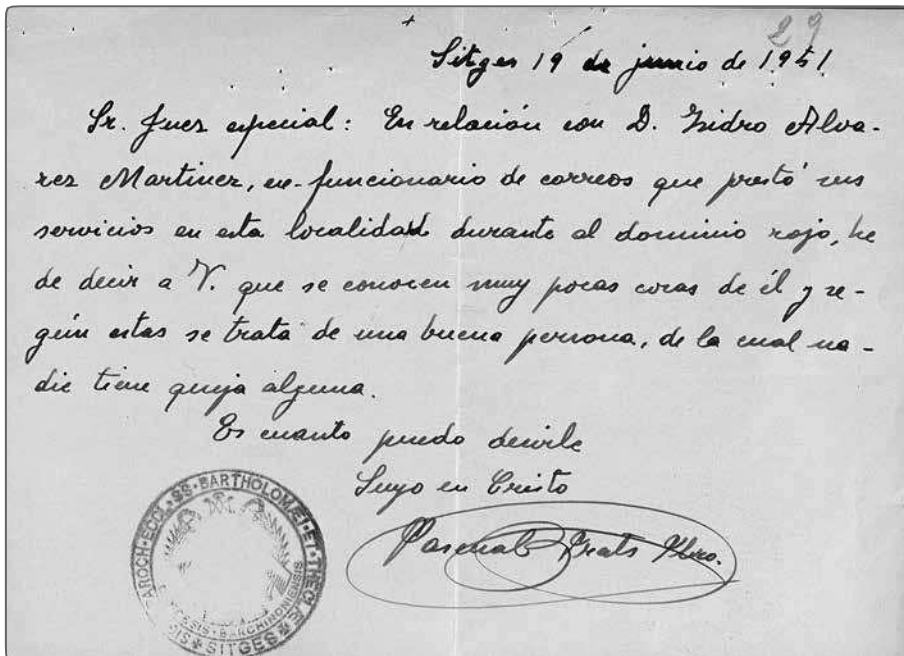 29
Sitges 19 de junio de 1951
Sr. Juez especial: En relación con D. Isidro Alva-
rez Martinez, ex-funcionario de correos que prestó sus
servicios en esta localidad durante el dominio rojo, he
de decir a V. que se conocen muy pocas cosas de él y se-
gún estas se trata de una buena persona, de la cual na-
die tiene queja alguna.
Es cuanto puedo decirle
Suyo en Cristo
Pascual Prats Pbro.
PAROCH·ECCL·SS·BARTHOLOMÆI·ET·THECLÆ
SITGES
BARCHINONENSIS